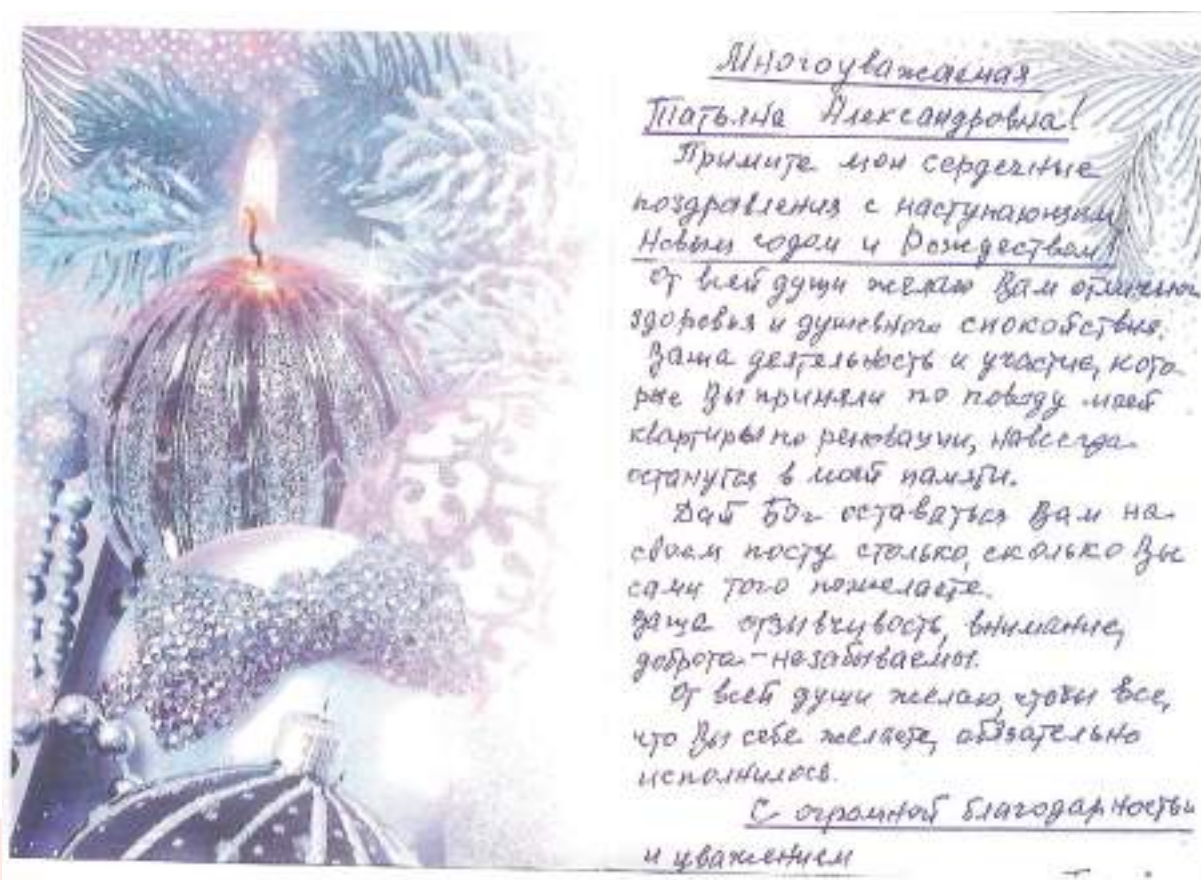 Многоуважаемая
Татьяна Александровна!
Примите мои сердечные
поздравления с наступающим
Новым годом и Рождеством!
От всей души желаю Вам отличного
здоровья и душевного спокойствия.
Ваша деятельность и участие, кото-
рые Вы приняли по поводу моей
квартиры по реновации, навсегда
останутся в моей памяти.
Дай Бог оставаться Вам на
своем посту столько, сколько Вы
сами того пожелаете.
Ваша отзывчивость, внимание,
доброта - незабываемы.
От всей души желаю, чтобы все,
что Вы себе желаете, обязательно
исполнилось.
С огромной благодарностью
и уважением